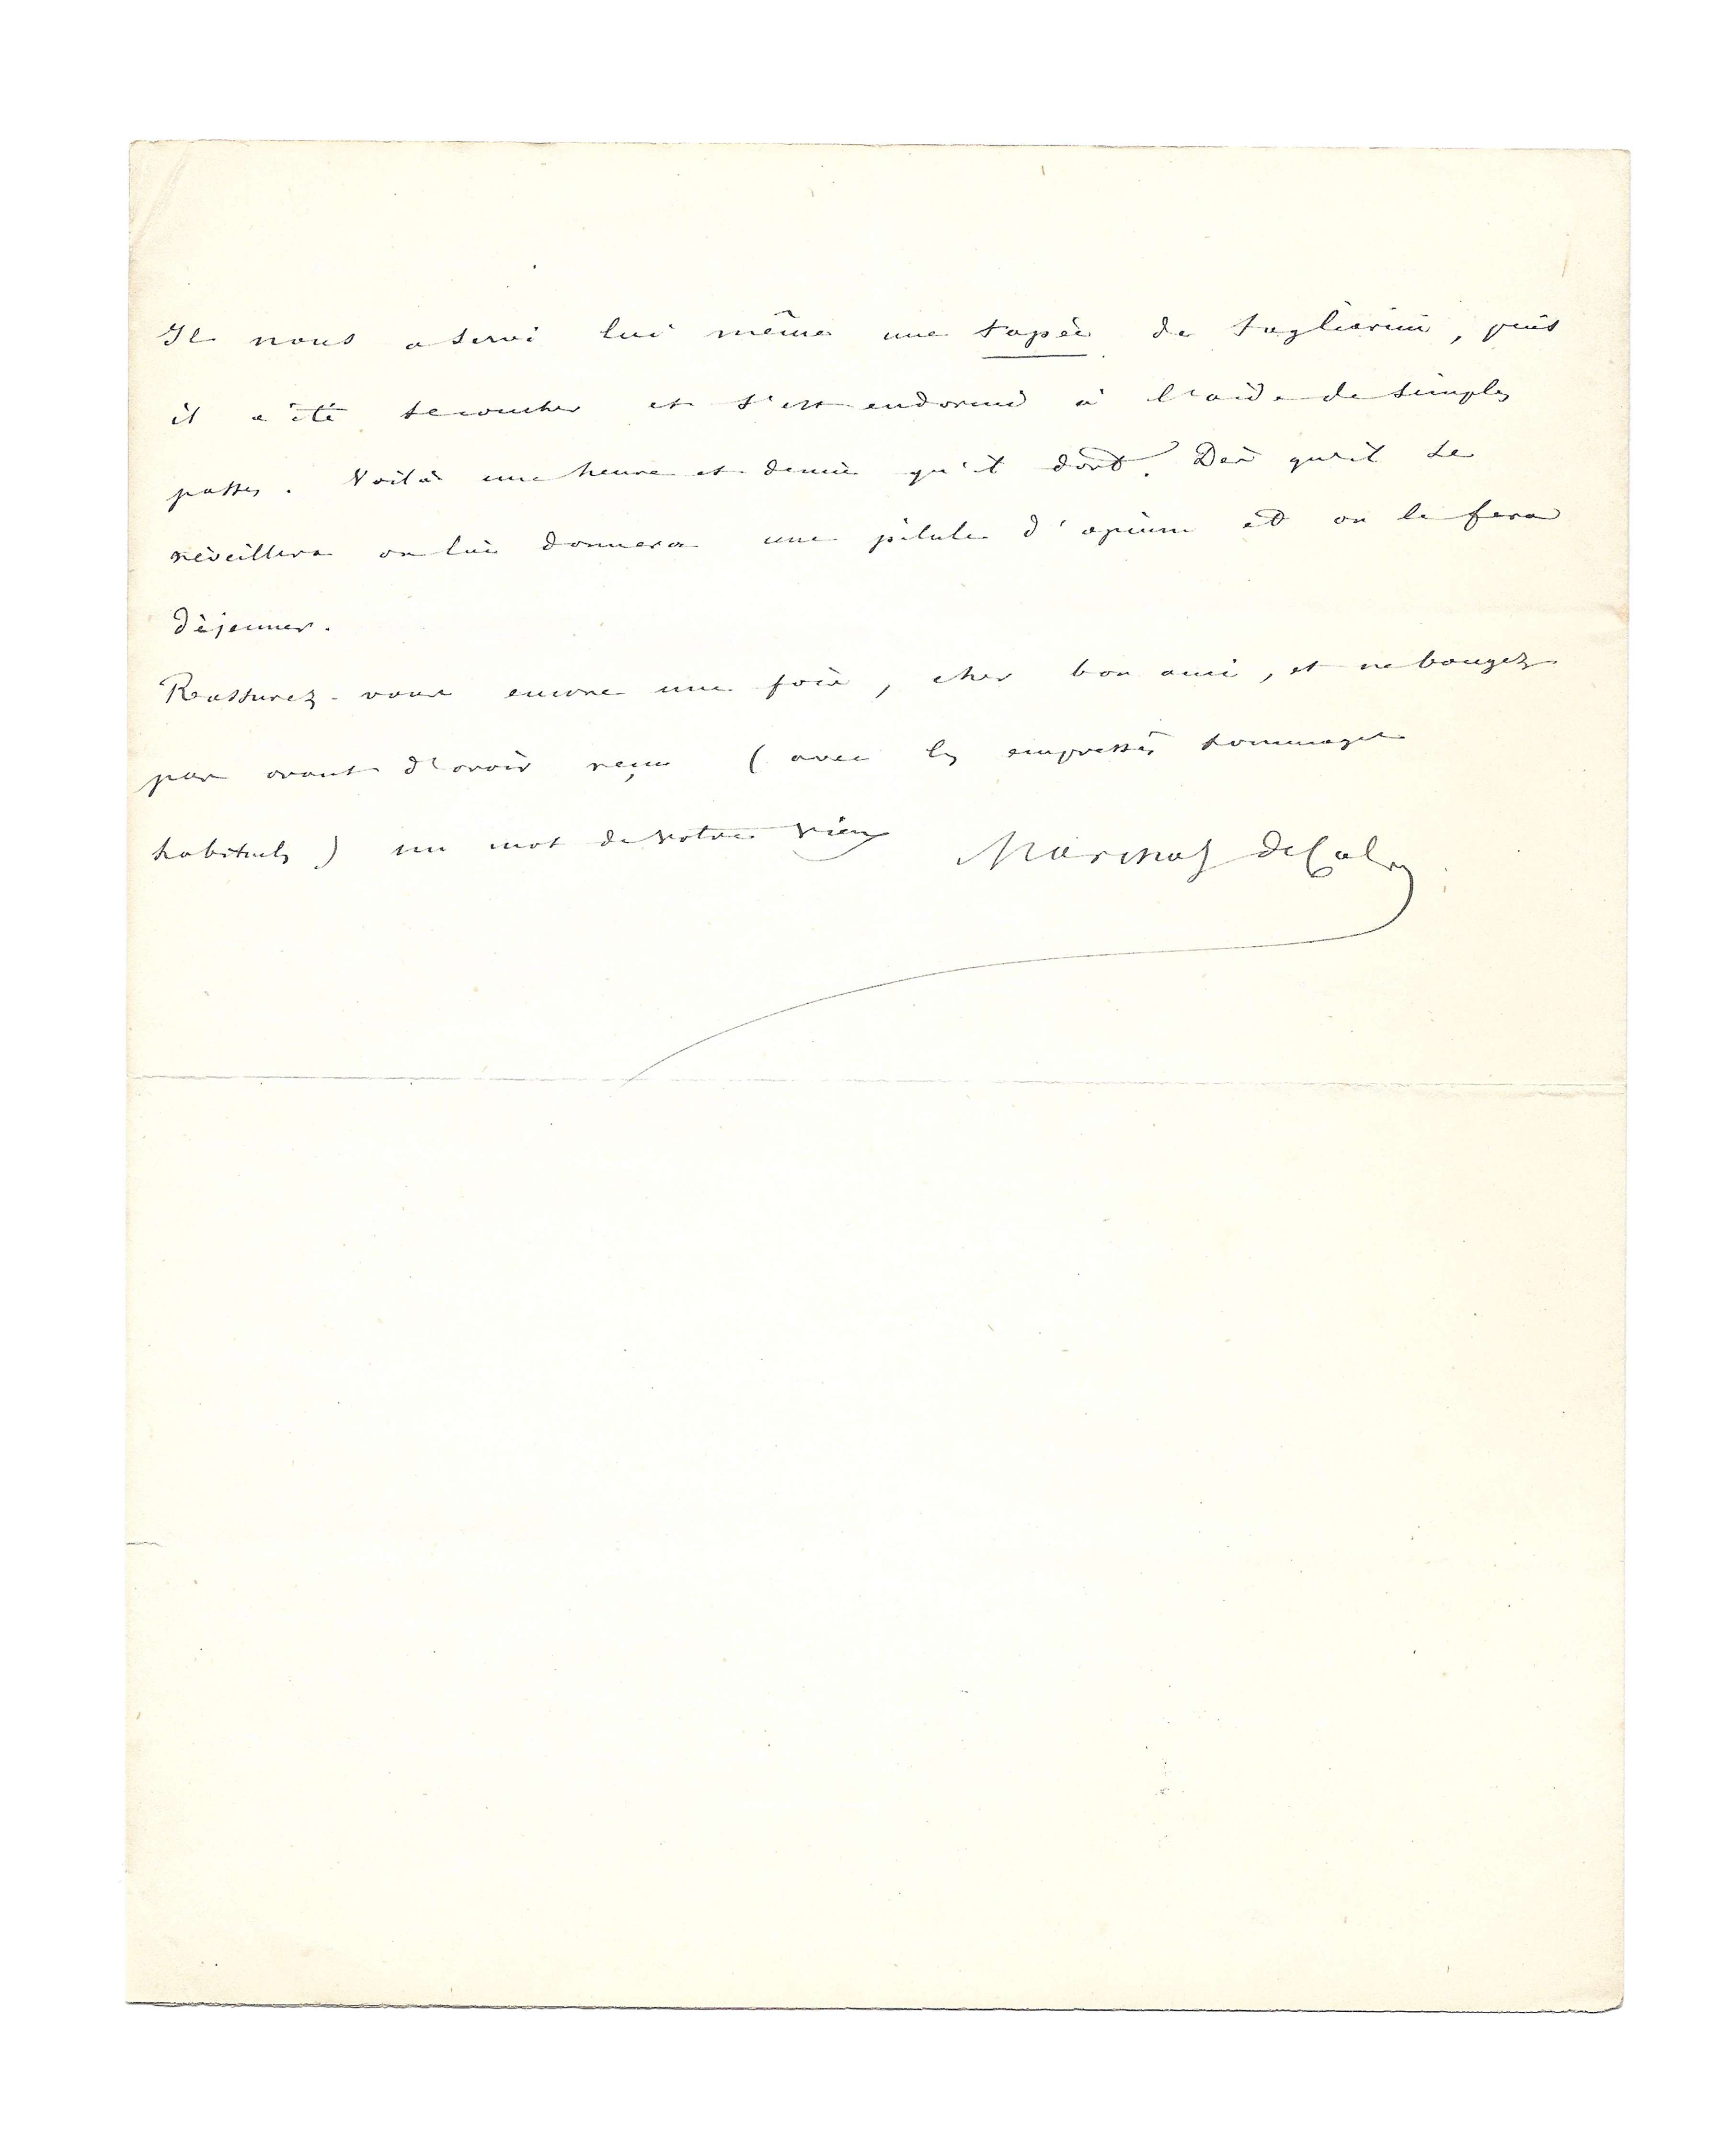 Il nous a servi lui même une tapée de tagliarini, puis
il a été se coucher et s'est endormi à l'aide de simples
passes. Voilà une heure et demie qu'il dort. Dès qu'il se
réveillera on lui donnera une pilule d'opium et on le fera
déjeuner.
Rassurez-vous encore une fois, cher bon ami, et ne bougez
pas avant d'avoir reçu (avec les empressés hommages
habituels) un mot de votre vieux